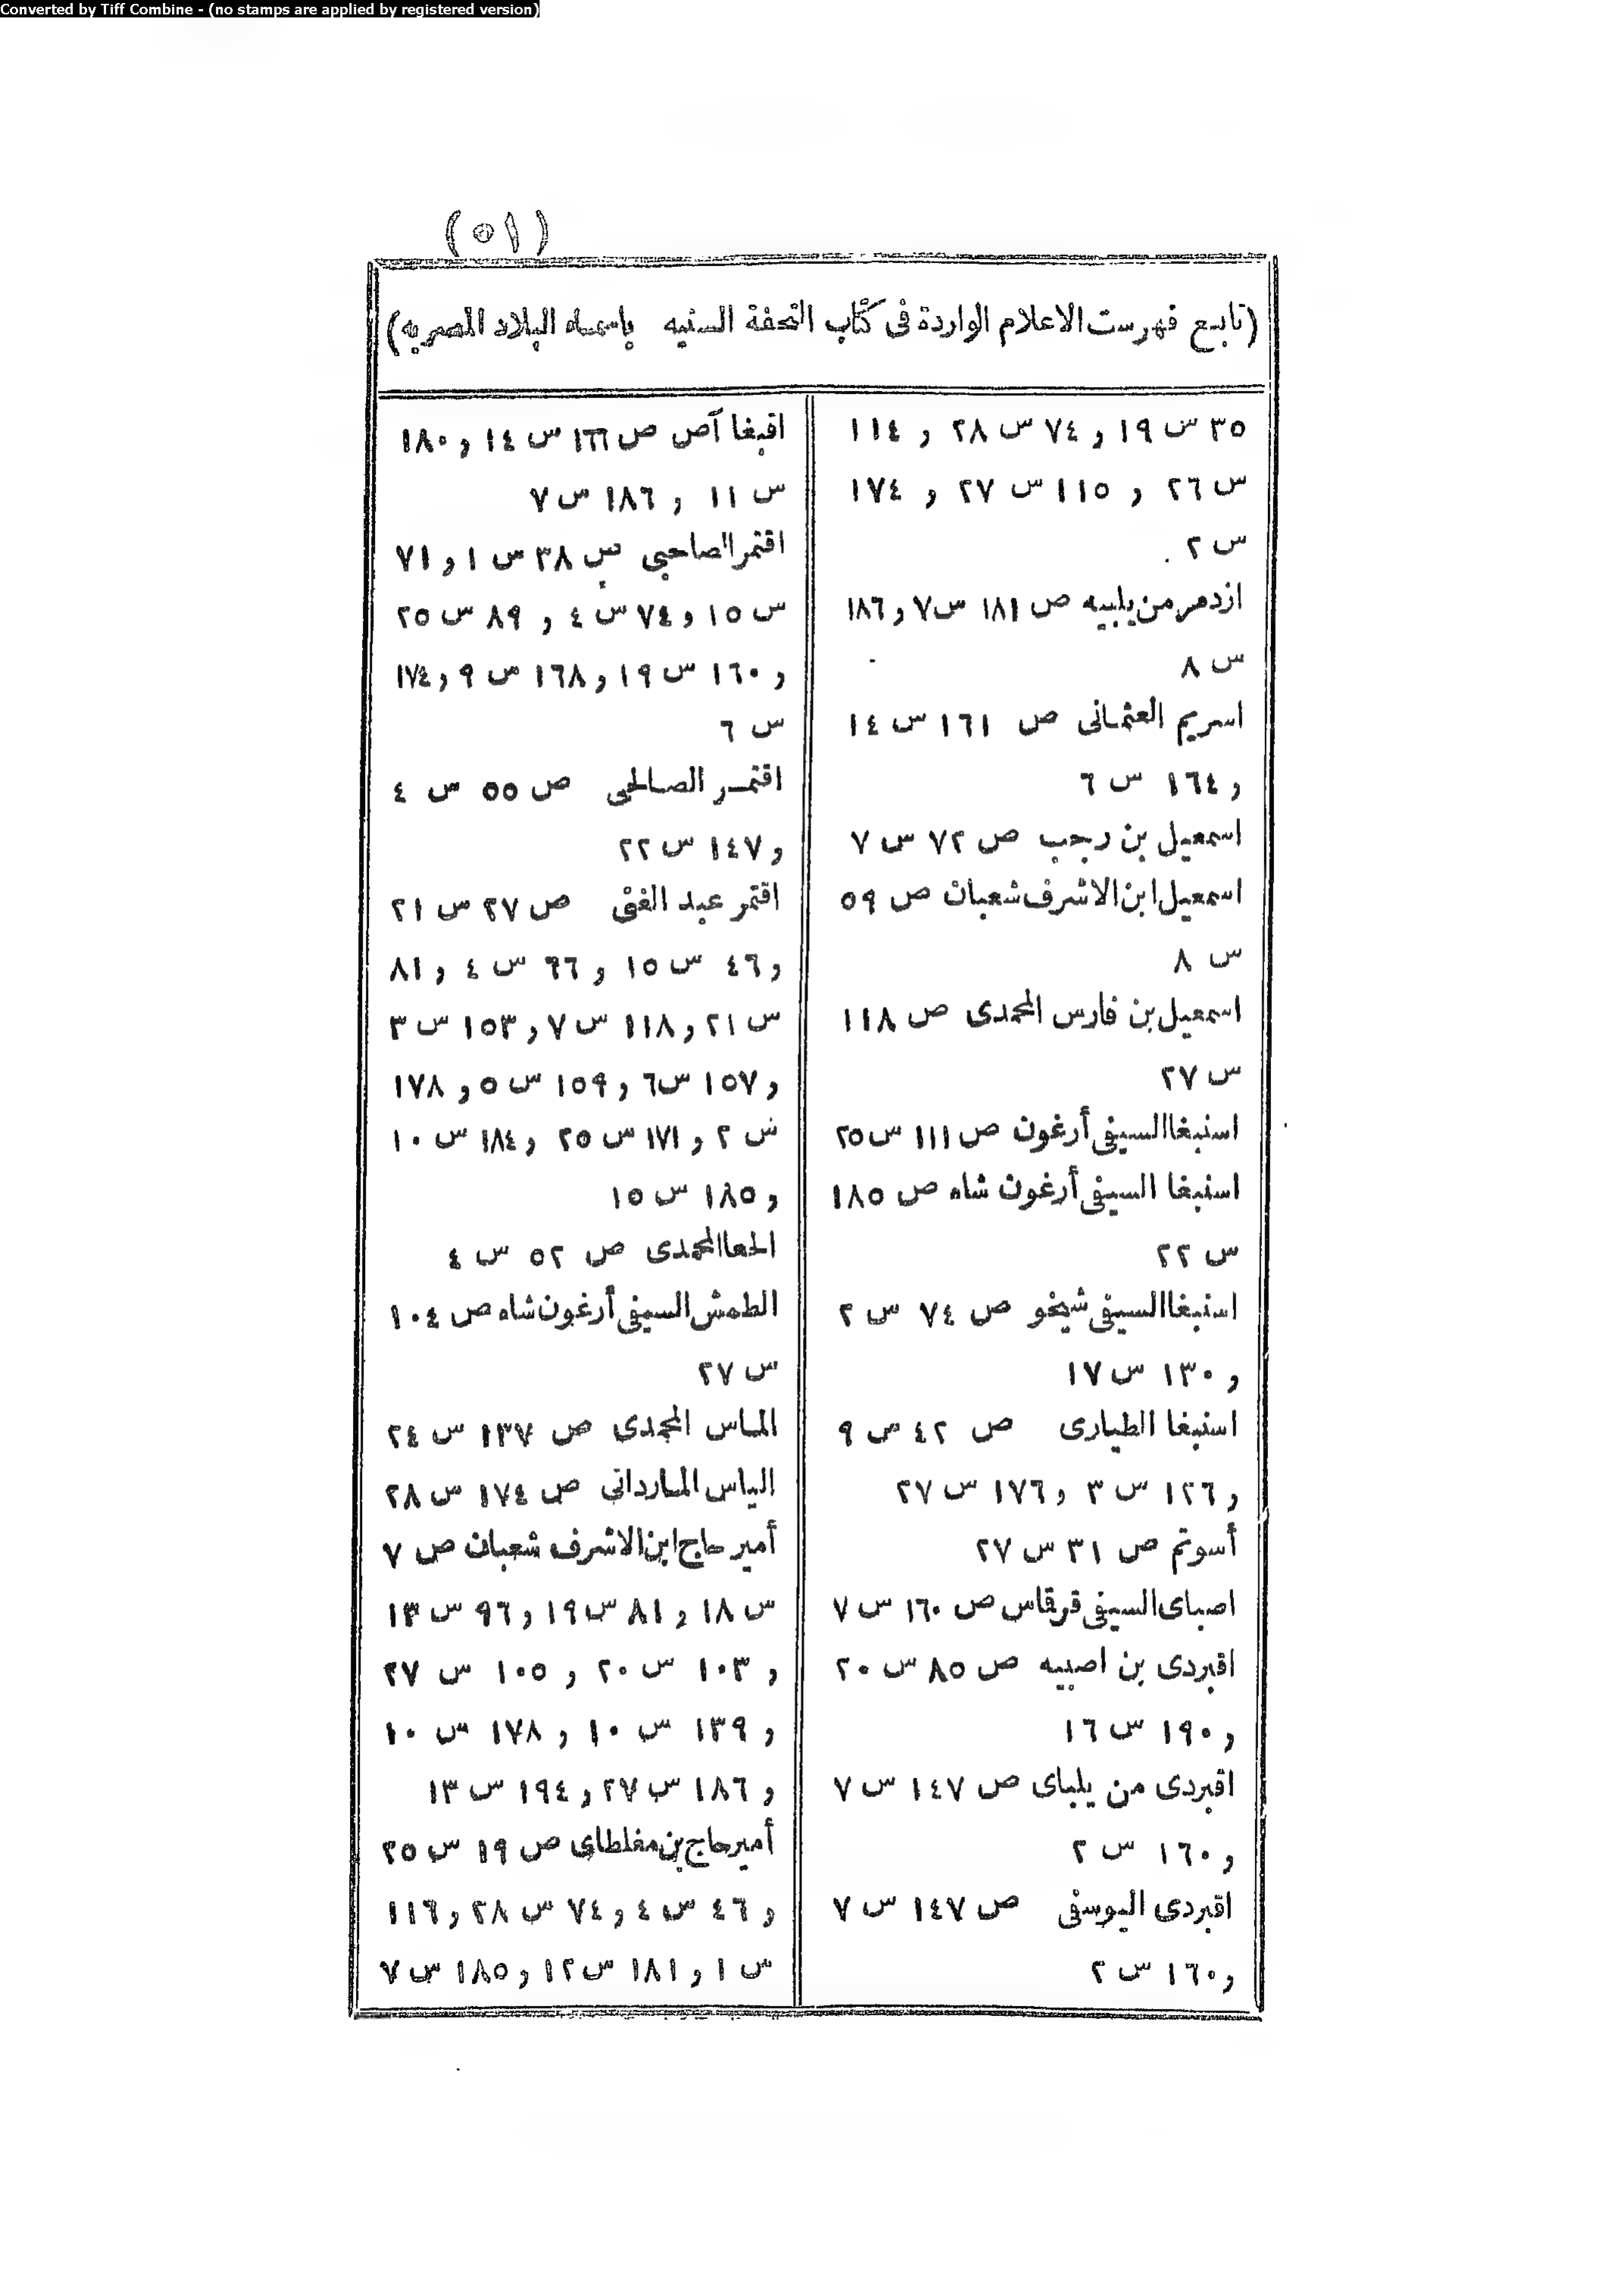 Converted by Tiff Combine - (no stamps are applied by registered version)
(٥١)
(تابع فهرست الاعلام الواردة فى كتاب التحفة السنيه باسماء البلاد المصريه)
٣٥ س ١٩ و ٧٤ س ٢٨ و ١١٤
س ٢٦ و ١١٥ س ٢٧ و ١٧٤
س ٢
ازدمر من يلبيه ص ١٨١ س ٧ و ١٨٦
س ٨
اسريم العثمانى ص ١٦١ س ١٤
و ١٦٤ س ٦
اسمعيل بن رجب ص ٧٢ س ٧
اسمعيل ابن الاشرف شعبان ص ٥٩
س ٨
اسمعيل بن فارس المحمدى ص ١١٨
س ٢٧
اسنبغا السيفى أرغون ص ١١١ س ٢٥
اسنبغا السيفى أرغون شاه ص ١٨٥
س ٢٢
اسنبغا السيفى شيخو ص ٧٤ س ٢
و ١٣٠ س ١٧
اسنبغا الطيارى ص ٤٢ س ٩
و ١٢٦ س ٣ و ١٧٦ س ٢٧
أسوتم ص ٣١ س ٢٧
اصباى السيفى قرقاس ص ١٦٠ س ٧
اقبردى بن اصبيه ص ٨٥ س ٢٠
و ١٩٠ س ١٦
اقبردى من يلباى ص ١٤٧ س ٧
و ١٦٠ س ٢
اقبردى اليوسفى ص ١٤٧ س ٧
و ١٦٠ س ٢
اقبغا آص ص ١٦٦ س ١٤ و ١٨٠
س ١١ و ١٨٦ س ٧
اقتمر الصاحبى ص ٣٨ س ١ و ٧١
س ١٥ و ٧٤ س ٤ و ٨٩ س ٢٥
و ١٦٠ س ١٩ و ١٦٨ س ٩ و ١٧٤
س ٦
اقتمر الصالحى ص ٥٥ س ٤
و ١٤٧ س ٢٢
اقتمر عبد الغنى ص ٢٧ س ٢١
و ٤٦ س ١٥ و ٦٦ س ٤ و ٨١
س ٢١ و ١١٨ س ٧ و ١٥٣ س ٣
و ١٥٧ س ٦ و ١٥٩ س ٥ و ١٧٨
س ٢ و ١٧١ س ٢٥ و ١٨٤ س ١٠
و ١٨٥ س ١٥
المحمدى ص ٥٢ س ٤
الطمش السيفى أرغون شاه ص ١٠٤
س ٢٧
الماس المحمدى ص ١٣٧ س ٢٤
الياس الماردانى ص ١٧٤ س ٢٨
أمير حاج ابن الاشرف شعبان ص ٧
س ١٨ و ٨١ س ١٩ و ٩٦ س ١٣
و ١٠٣ س ٢٠ و ١٠٥ س ٢٧
و ١٣٩ س ١٠ و ١٧٨ س ١٠
و ١٨٦ س ٢٧ و ١٩٤ س ١٣
أمير حاج بن مغلطاى ص ١٩ س ٢٥
و ٤٦ س ٤ و ٧٤ س ٢٨ و ١١٦
س ١ و ١٨١ س ١٢ و ١٨٥ س ٧